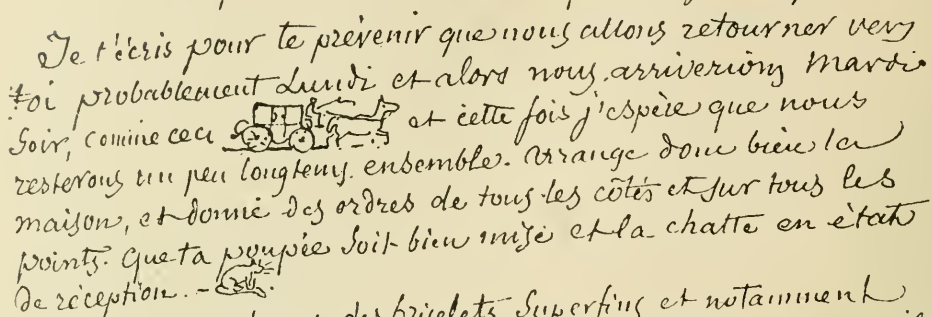 Je t'écris pour te prévenir que nous allons retourner vers
toi probablement Lundi et alors nous arriverions Mardi
Soir, comme ceci et cette fois j'espère que nous
resterons un peu longtems ensemble. Arrange donc bien la
maison, et donne des ordres de tous les côtés et sur tous les
points. Que ta poupée soit bien mise et la chatte en état
de réception. -
des bricelets Superfins et notamment